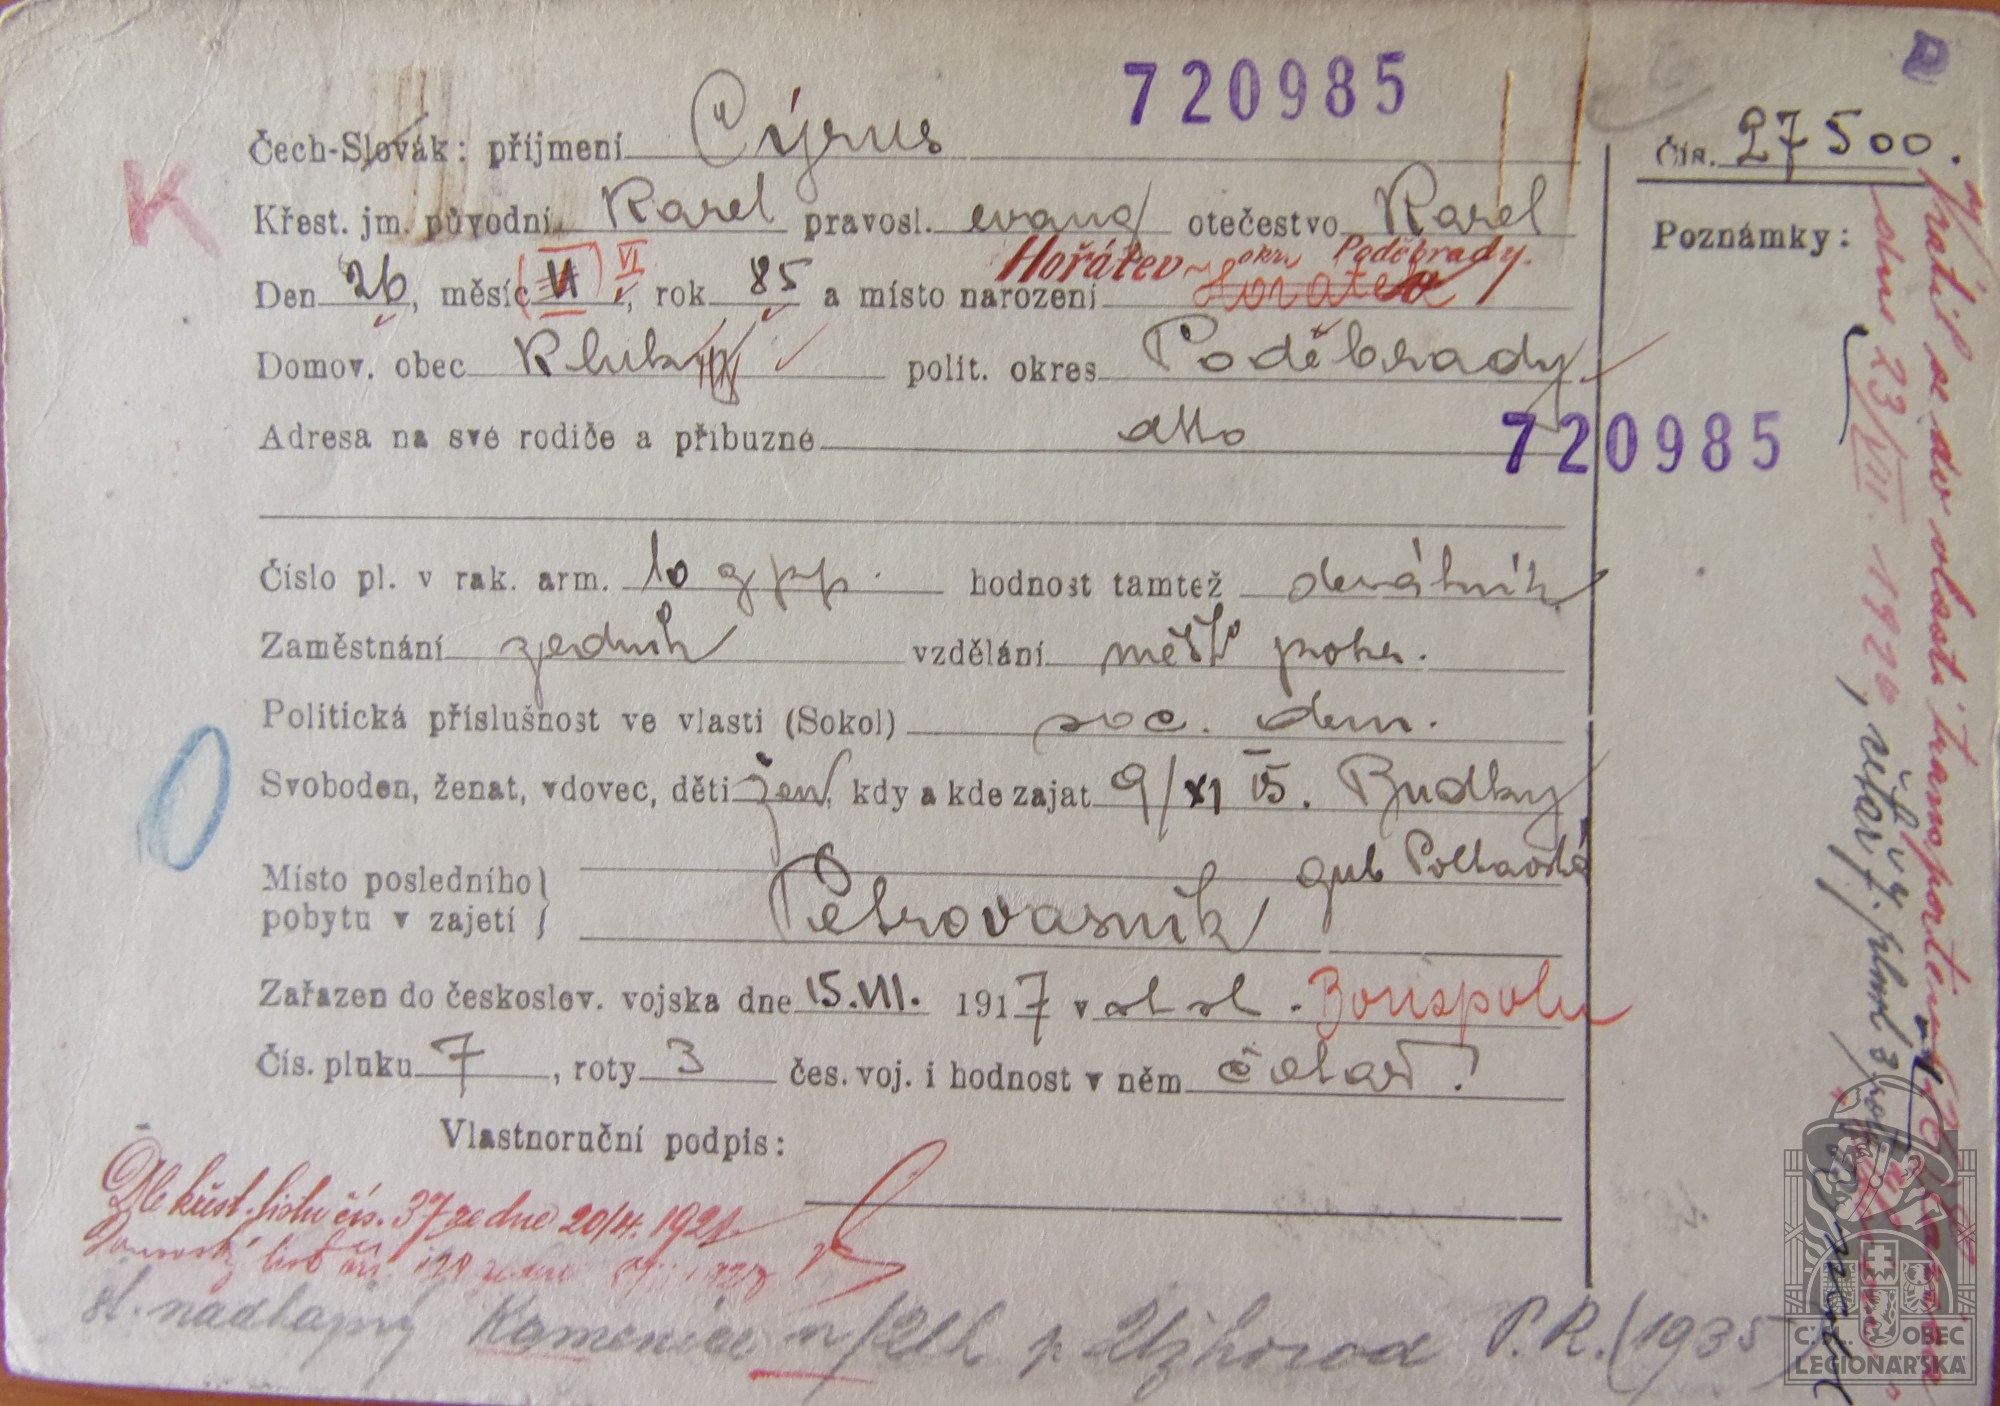 720985
Čech-Slovák: příjmení Cýrus
Čís. 27500.
Křest. jm. původní Karel pravosl. evang otečestvo Karel
Hořátev okr. Poděbrady.
Den 26, měsíc VI VI, rok 85 a místo narození Horátev
Poznámky:
Domov. obec Kluk polit. okres Poděbrady
Adresa na své rodiče a příbuzné dtto
720985
Číslo pl. v rak. arm. 10 g pp. hodnost tamtéž desátník
Zaměstnání vzdělání měšť
Politická příslušnost ve vlasti (Sokol) soc. dem.
Svoboden, ženat, vdovec, děti žen, kdy a kde zajat 9/XI 15. Budky
Místo posledního
pobytu v zajetí } gub Poltavská
Zařazen do českoslov. vojska dne 15.VII. 1917 v Borispolu
Čís. pluku 7, roty 3 čes. voj. i hodnost v něm četař.
Vlastnoruční podpis:
Dle křest. listu čís. 37 ze dne 20/4. 1921
Domovský list čís.
st. nadhajný Kamenice n/Uh p. Užhorod P.R. (1935)
K
vrátil se do vlasti transportem
dne 23/VII. 1920, četař
ČS. OBEC
LEGIONÁŘSKÁ